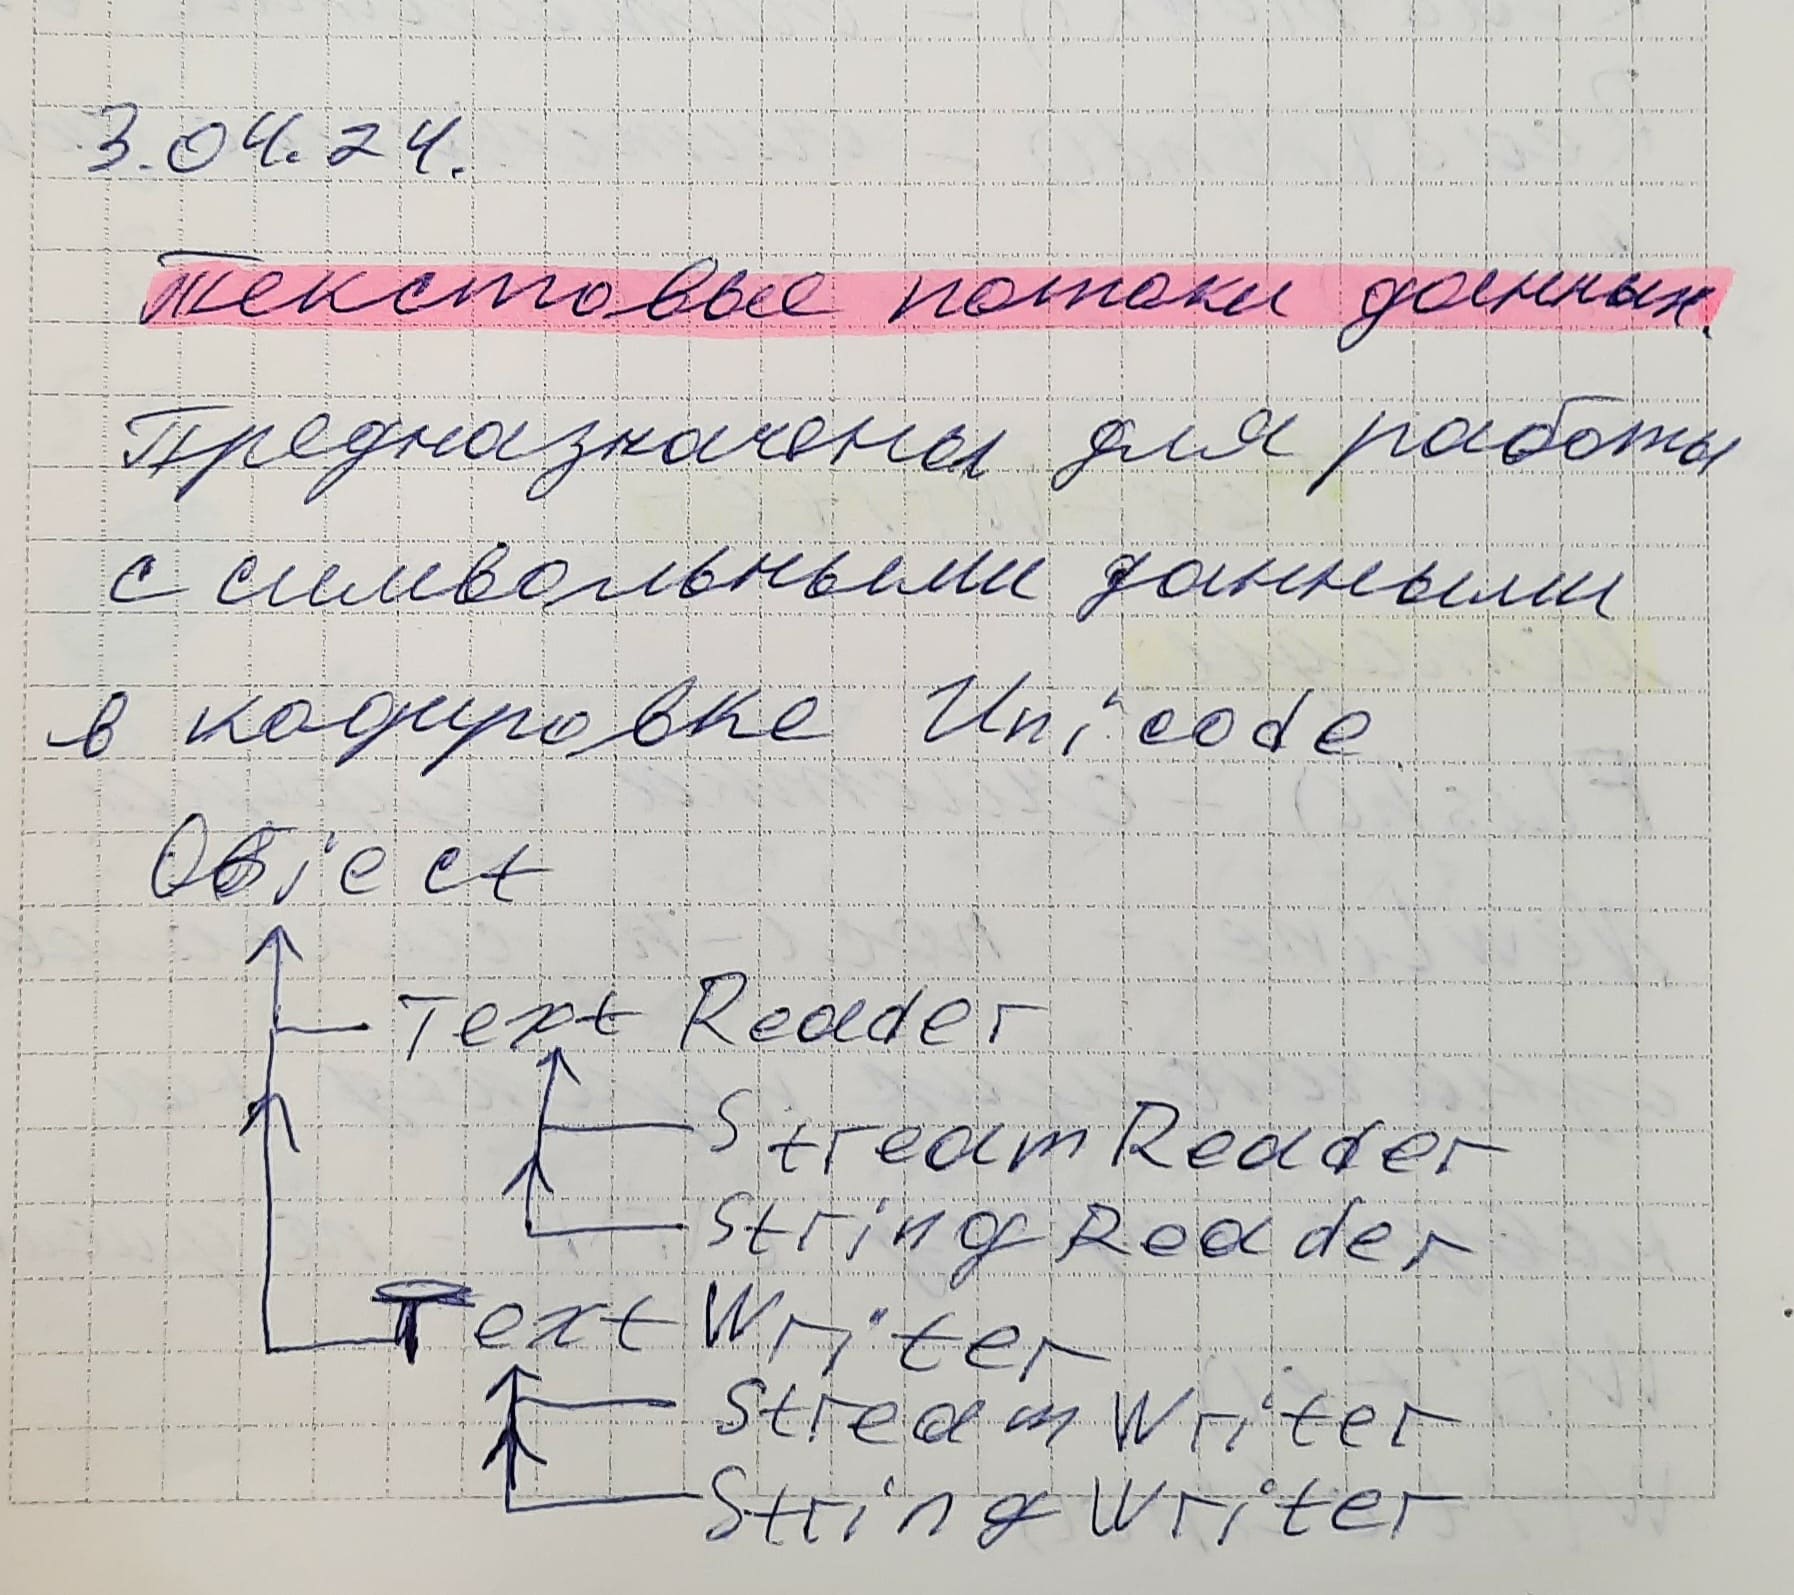 3.04.24.
Текстовые потоки данных.
Предназначены для работы
с символьными данными
в кодировке Unicode
Object
Text Reader
StreamReader
StringReader
TextWriter
StreamWriter
StringWriter